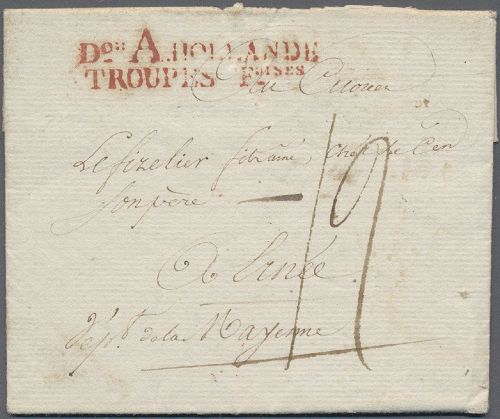 Don A HOLLANDE
TROUPES Foises
Au Citoyen
Lefizelier fils aîné, Chez le Cen
son père
19
A Ernée
dépt. de la Mayenne